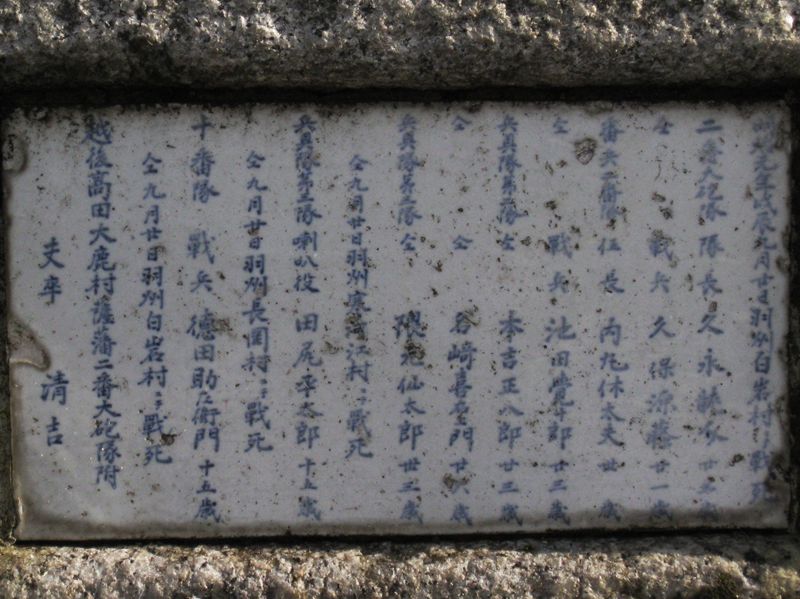 明治元年戊辰九月廿日羽州白岩村ニテ戦死
二番大砲隊 隊長 久永 廿 歳
仝 戦兵 久保源蔵 廿一歳
番兵二番隊 伍長 両九休太夫 廿 歳
仝 戦兵 池田覚十郎 廿二歳
兵具隊 仝 本吉正八郎 廿三歳
仝 仝 谷崎喜左門 廿六歳
兵具隊 仝 隈元仙太郎 廿三歳
仝九月廿日羽州寒河江村ニテ戦死
兵具隊第三隊喇叭役 田尻平太郎 十五歳
仝九月廿日羽州長岡村ニテ戦死
十番隊 戦兵 德田助左衛門 十五歳
仝九月廿日羽州白岩村ニテ戦死
越後高田大鹿村薩藩二番大砲隊附
夫卒 清吉